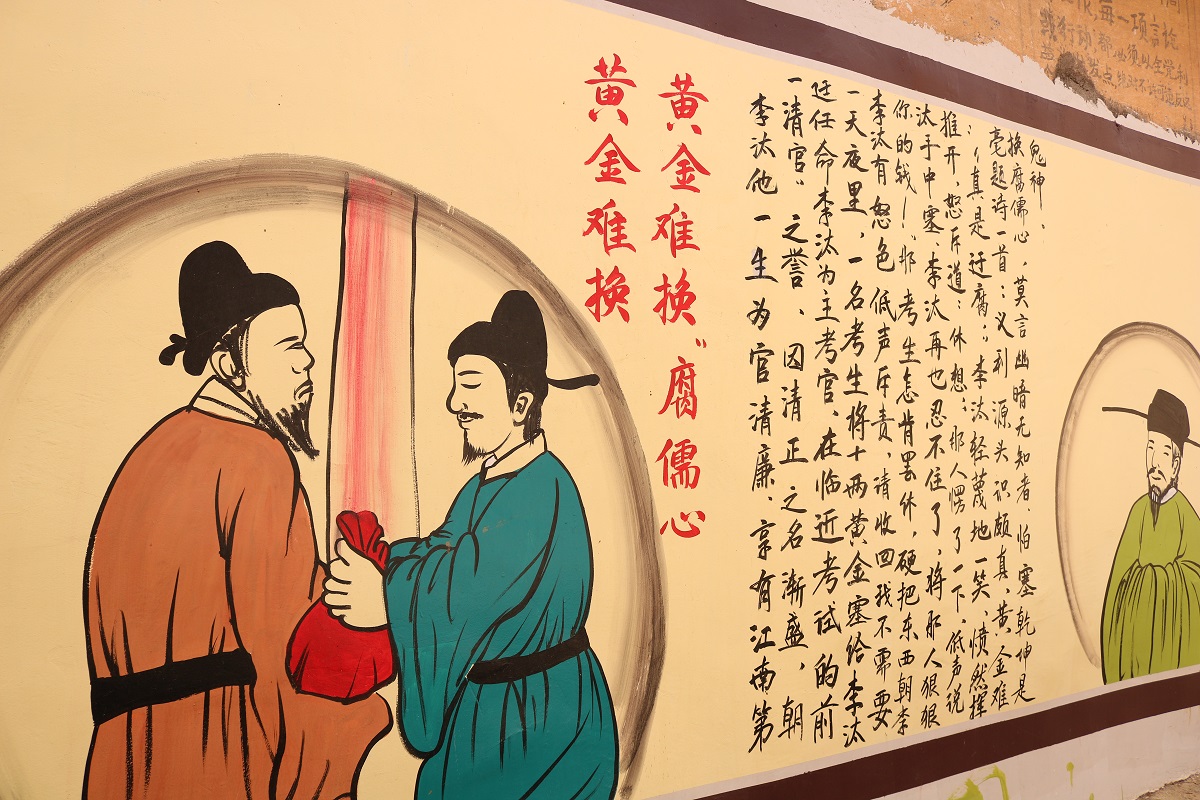 黄金难换
黄金难换“腐儒心
李汰他一生为官清廉、享有江南第
一清官”之誉、因清正之名渐盛,朝
廷任命李汰为主考官、在临近考试的前
一天夜里,一名考生将十两黄金塞给李汰
李汰有怒色低声斥责,请收回我不需要
你的钱!”那考生怎肯罢休,硬把东西朝李
汰手中塞、李汰再也忍不住了,将那人狠狠
推开,怒斥道:休想;那人愣了一下,低声说
:“真是迂腐;李汰轻蔑地一笑,愤然挥
毫题诗一首:义利源头识颇真,黄金难
换腐儒心,莫言幽暗无知者、怕塞乾坤是
鬼神、
每一项言论
或行动,都必须以
发点